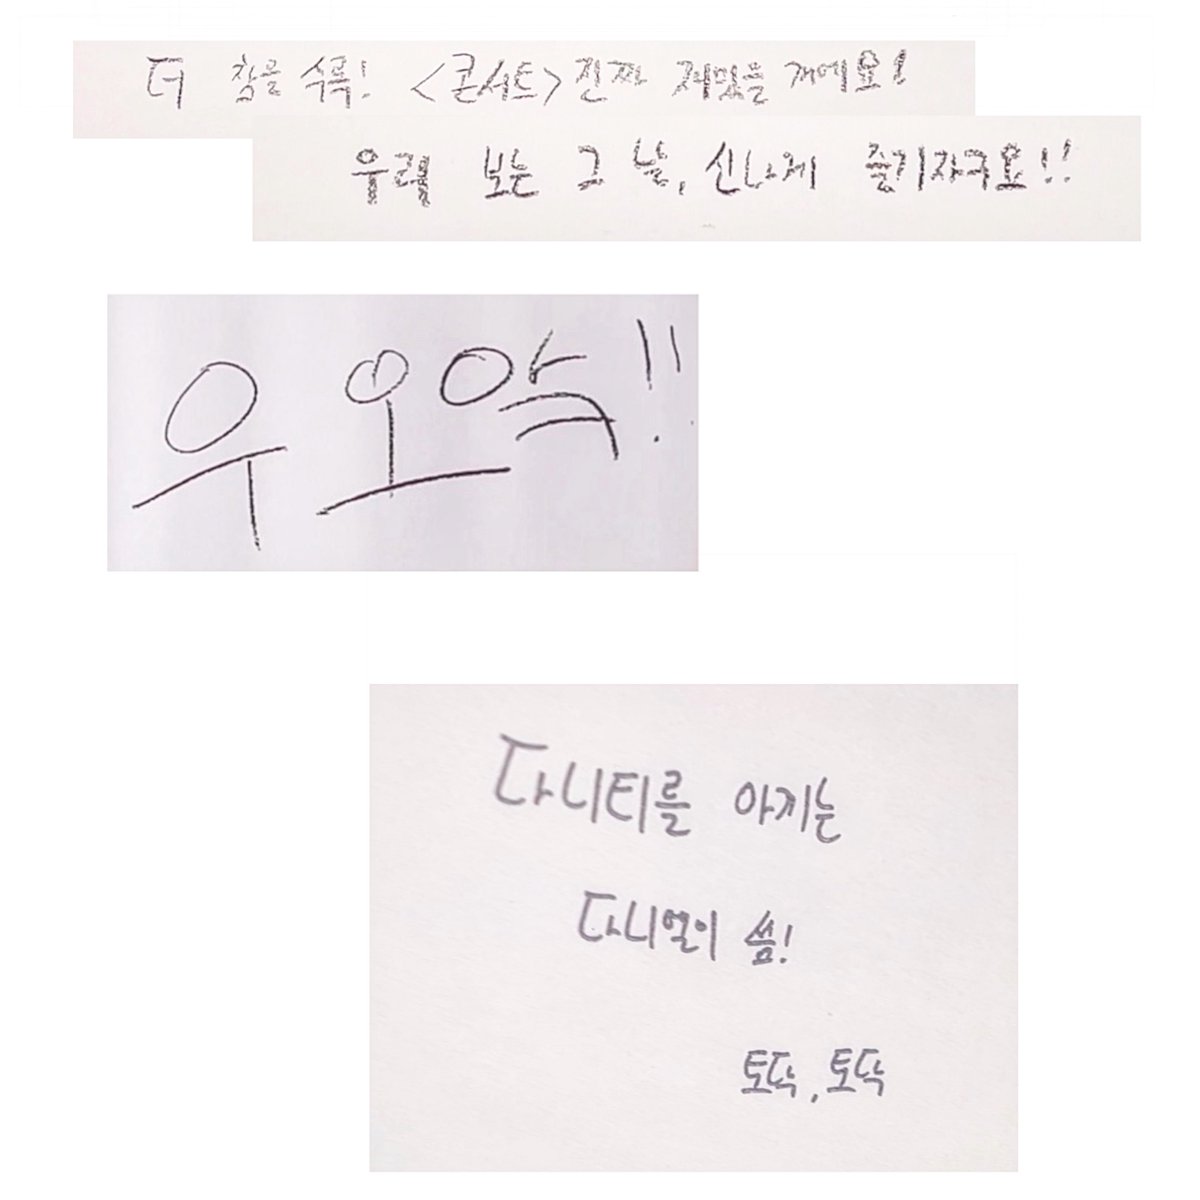 더 참을 수록! <콘서트> 진짜 재밌을 거에요!
우리 보는 그 날, 신나게 즐기자구요!!
우오악!!
다니티를 아끼는
다니엘이 씀!
토닥, 토닥